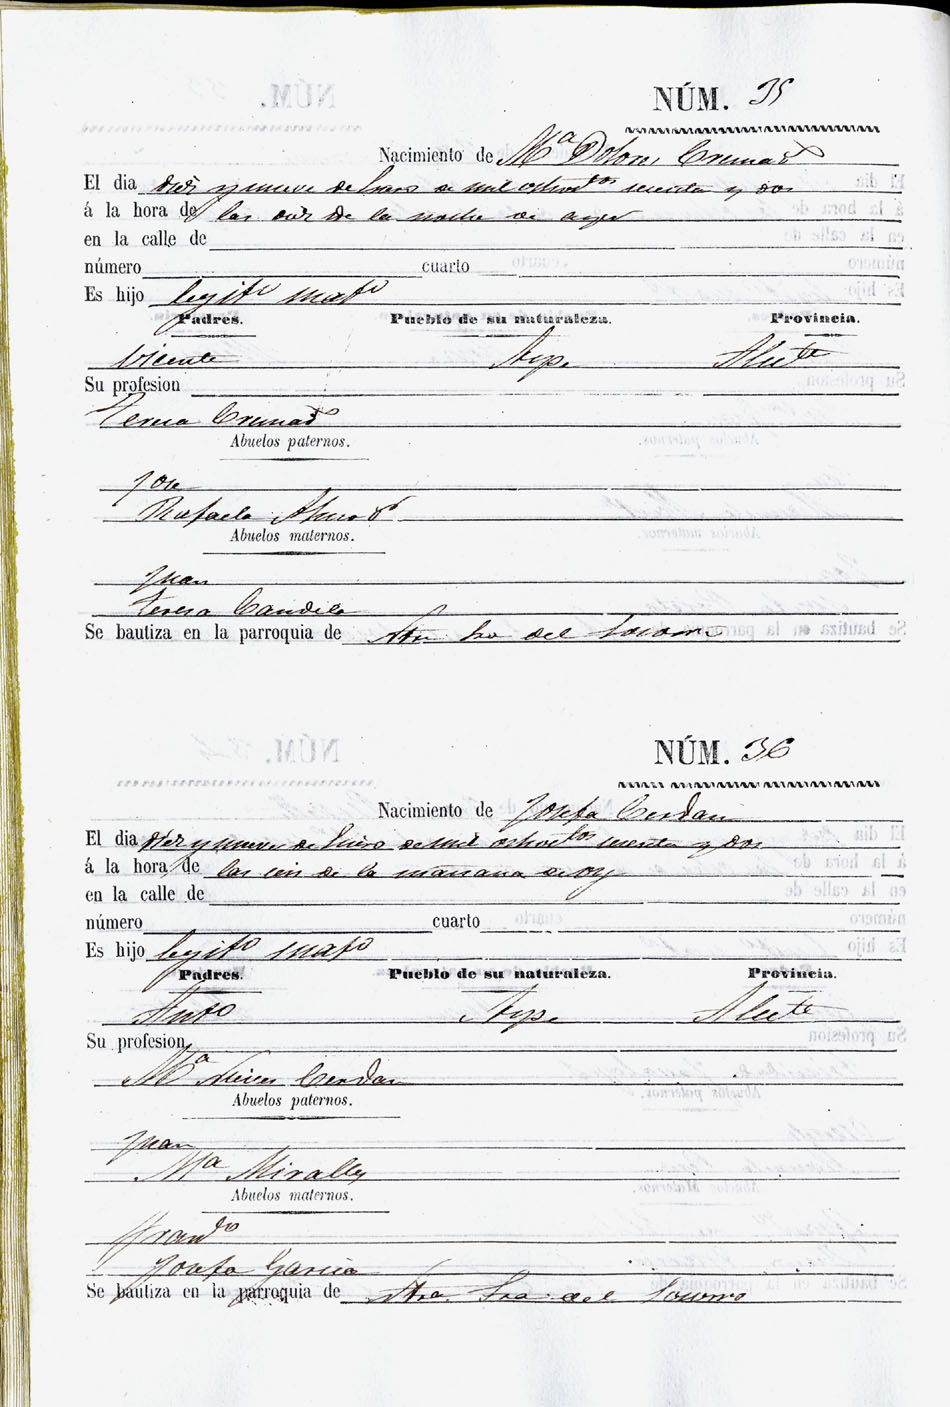 NÚM. 35
Nacimiento de Mª Dolores Cremad.s
El dia diez y nueve de Enero de mil ochoctos sesenta y dos
á la hora de las diez de la noche de ayer
en la calle de
número cuarto
Es hijo legito mato
Padres. Pueblo de su naturaleza. Provincia.
Vicente Aspe Alicte
Su profesion
Teresa Cremads
Abuelos paternos.
Jose
Rafaela
Abuelos maternos.
Juan
Teresa Candela
Se bautiza en la parroquia de Ntra Sra del Socorro
NÚM. 36
Nacimiento de Josefa Cerdan
El dia diez y nueve de Enero de mil ochoctos sesenta y dos
á la hora de las seis de la mañana de oy
en la calle de
número cuarto
Es hijo legito mato
Padres. Pueblo de su naturaleza. Provincia.
Anto Aspe Alicte
Su profesion
Mª Nieves Cerdan
Abuelos paternos.
Juan
Mª Miralles
Abuelos maternos.
Franco
Josefa Garcia
Se bautiza en la parroquia de Ntra. Sra. del Socorro